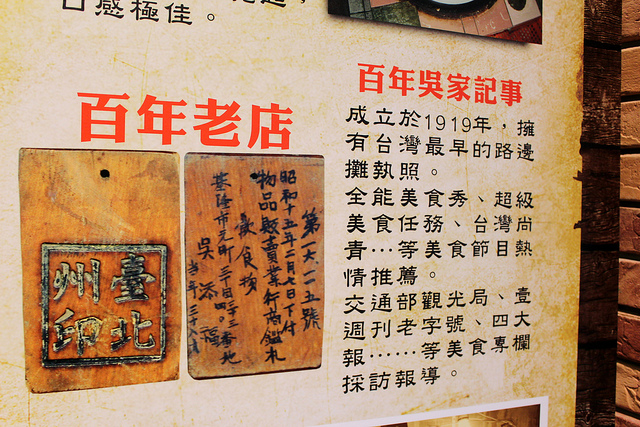 口感極佳。
百年老店
臺北
州印
第一六一一五號
昭和十五年二月七日下付
物品販賣業行商鑑札
飲食物
基隆市元町二丁目三十三番地
吳添福
當年三十八
百年吳家記事
成立於1919年，擁
有台灣最早的路邊
攤執照。
全能美食秀、超級
美食任務、台灣尚
青…等美食節目熱
情推薦。
交通部觀光局、壹
週刊老字號、四大
報……等美食專欄
採訪報導。